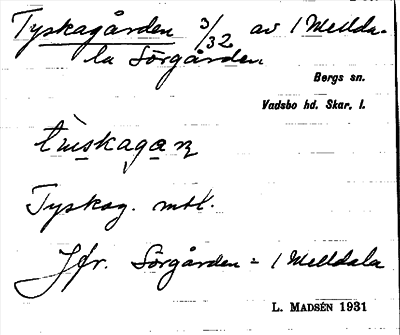 Tyskagården 3/32 av 1 Mellda-
la Sörgården
Bergs sn.
Vadsbo hd. Skar. l.
Tyskag. mtl.
Jfr. Sörgården = 1 Melldala
L. MADSÉN 1931